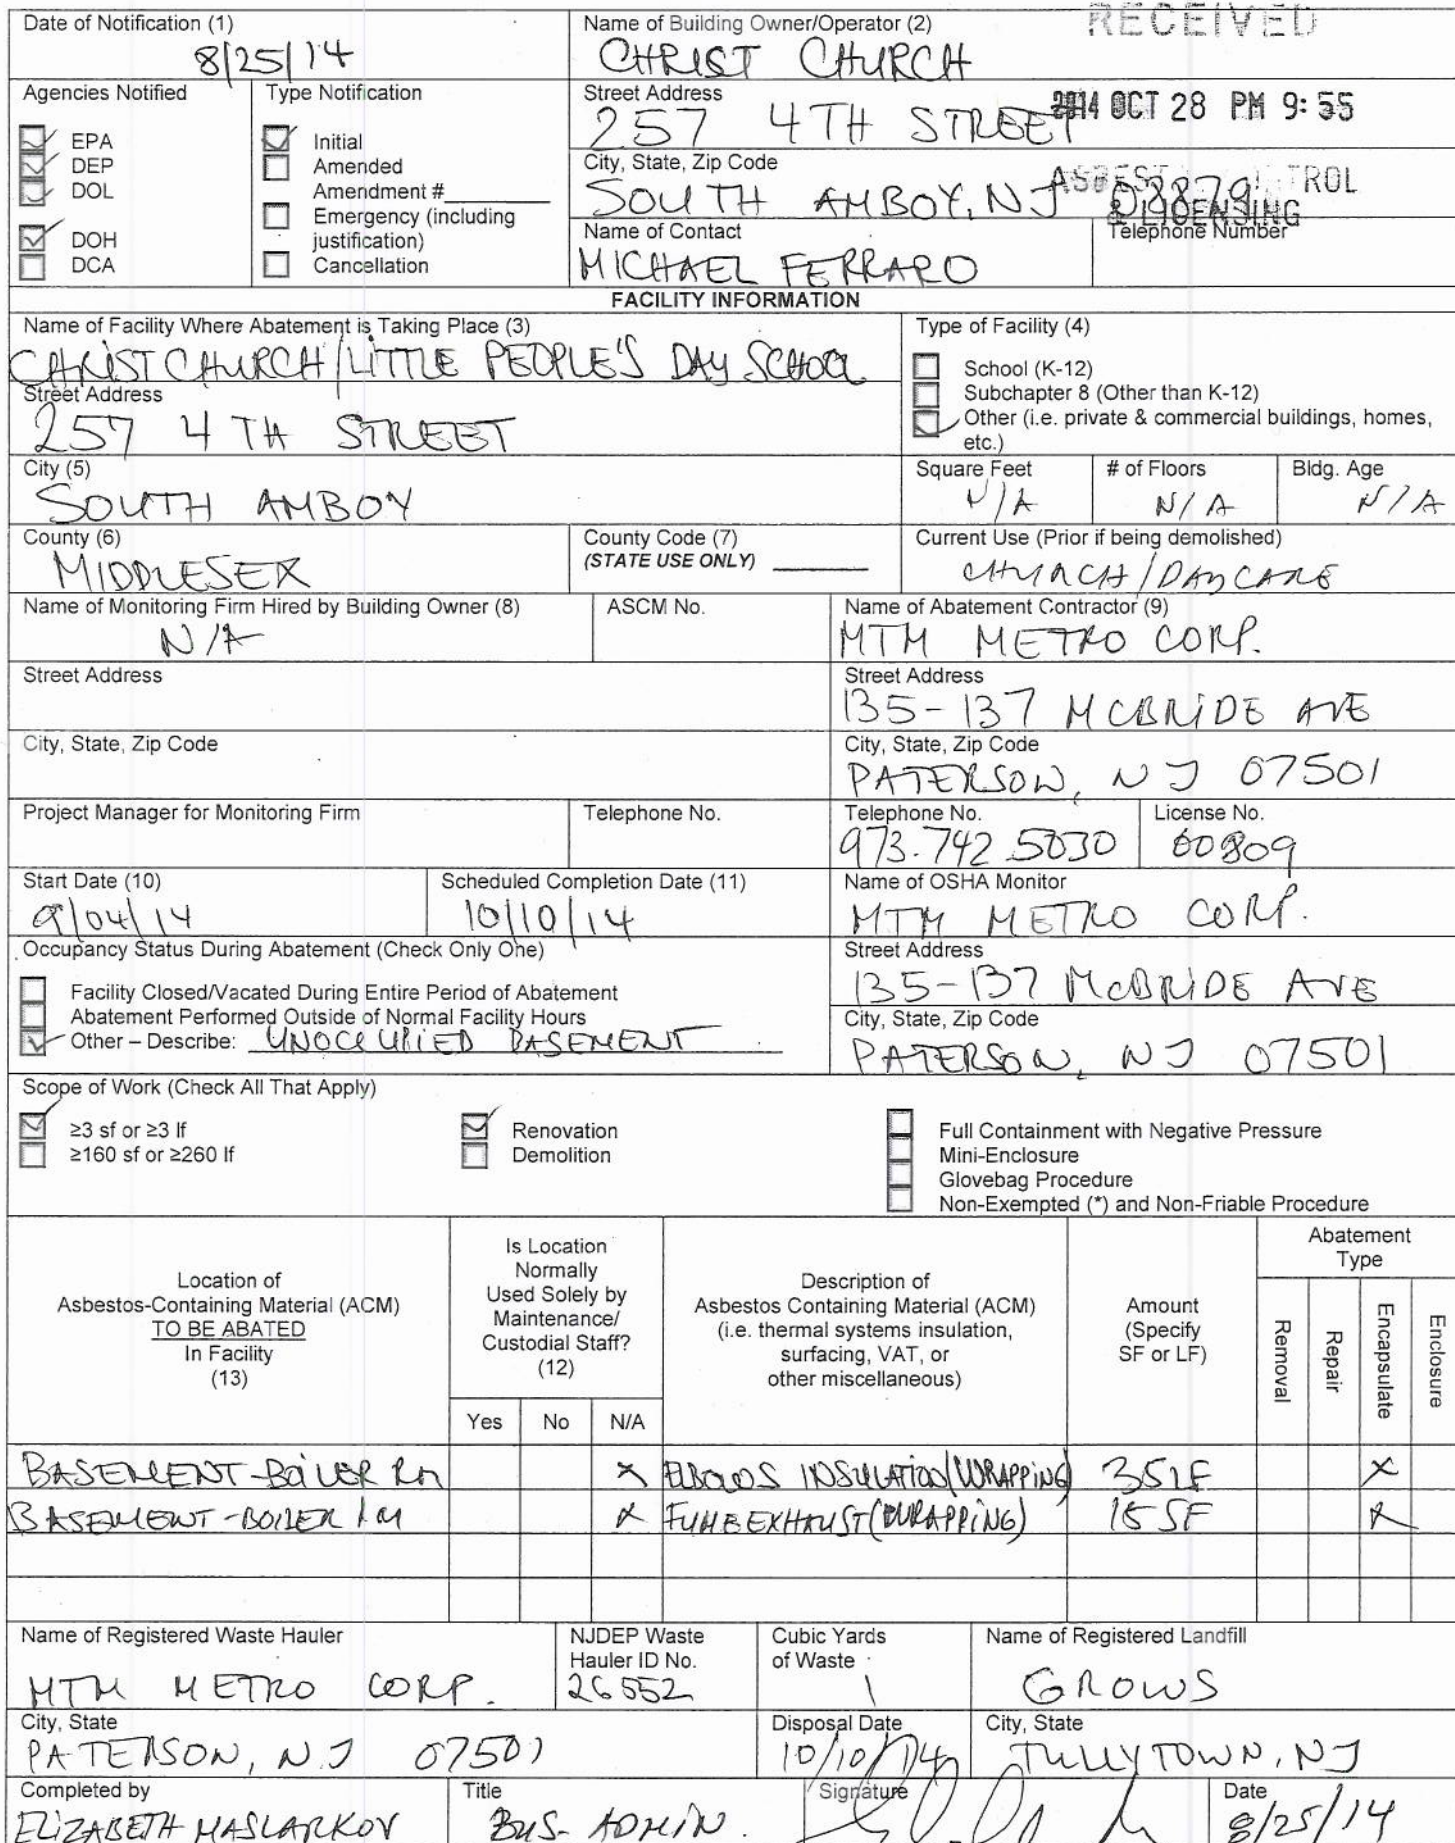 RECEIVED
Date of Notification (1)
8/25/14
Name of Building Owner/Operator (2)
CHRIST CHURCH
Agencies Notified
EPA
DEP
DOL
DOH
DCA
Type Notification
Initial
Amended
Amendment #
Emergency (including
justification)
Cancellation
Street Address
257 4TH STREET
2014 OCT 28 PM 9:55
City, State, Zip Code
SOUTH AMBOY, NJ 08879
& LICENSING
Name of Contact
MICHAEL FERRARO
Telephone Number
FACILITY INFORMATION
Name of Facility Where Abatement is Taking Place (3)
CHRIST CHURCH/LITTLE PEOPLE'S DAY SCHOOL
Type of Facility (4)
School (K-12)
Subchapter 8 (Other than K-12)
Other (i.e. private & commercial buildings, homes,
etc.)
Street Address
257 4TH STREET
City (5)
SOUTH AMBOY
Square Feet
N/A
# of Floors
N/A
Bldg. Age
N/A
County (6)
MIDDLESEX
County Code (7)
(STATE USE ONLY)
Current Use (Prior if being demolished)
CHURCH/DAYCARE
Name of Monitoring Firm Hired by Building Owner (8)
N/A
ASCM No.
Name of Abatement Contractor (9)
MTM METRO CORP.
Street Address
Street Address
135-137 MCBRIDE AVE
City, State, Zip Code
City, State, Zip Code
PATERSON, NJ 07501
Project Manager for Monitoring Firm
Telephone No.
Telephone No.
973.742.5030
License No.
00809
Start Date (10)
9/04/14
Scheduled Completion Date (11)
10/10/14
Name of OSHA Monitor
MTM METRO CORP.
Occupancy Status During Abatement (Check Only One)
Facility Closed/Vacated During Entire Period of Abatement
Abatement Performed Outside of Normal Facility Hours
Other – Describe: UNOCCUPIED BASEMENT
Street Address
135-137 McBRIDE AVE
City, State, Zip Code
PATERSON, NJ 07501
Scope of Work (Check All That Apply)
≥3 sf or ≥3 lf
≥160 sf or ≥260 lf
Renovation
Demolition
Full Containment with Negative Pressure
Mini-Enclosure
Glovebag Procedure
Non-Exempted (*) and Non-Friable Procedure
Location of
Asbestos-Containing Material (ACM)
TO BE ABATED
In Facility
(13)
Is Location
Normally
Used Solely by
Maintenance/
Custodial Staff?
(12)
Yes No N/A
Description of
Asbestos Containing Material (ACM)
(i.e. thermal systems insulation,
surfacing, VAT, or
other miscellaneous)
Amount
(Specify
SF or LF)
Abatement
Type
Removal
Repair
Encapsulate
Enclosure
BASEMENT-BOILER RM X ELBOWS INSULATION(WRAPPING) 35LF X
BASEMENT-BOILER RM X FUME EXHAUST(WRAPPING) 15 SF X
Name of Registered Waste Hauler
MTM METRO CORP.
NJDEP Waste
Hauler ID No.
26552
Cubic Yards
of Waste
1
Name of Registered Landfill
GROWS
City, State
PATERSON, NJ 07501
Disposal Date
10/10/14
City, State
TULLYTOWN, NJ
Completed by
ELIZABETH MASLARKOV
Title
BUS. ADMIN.
Signature
Date
8/25/14